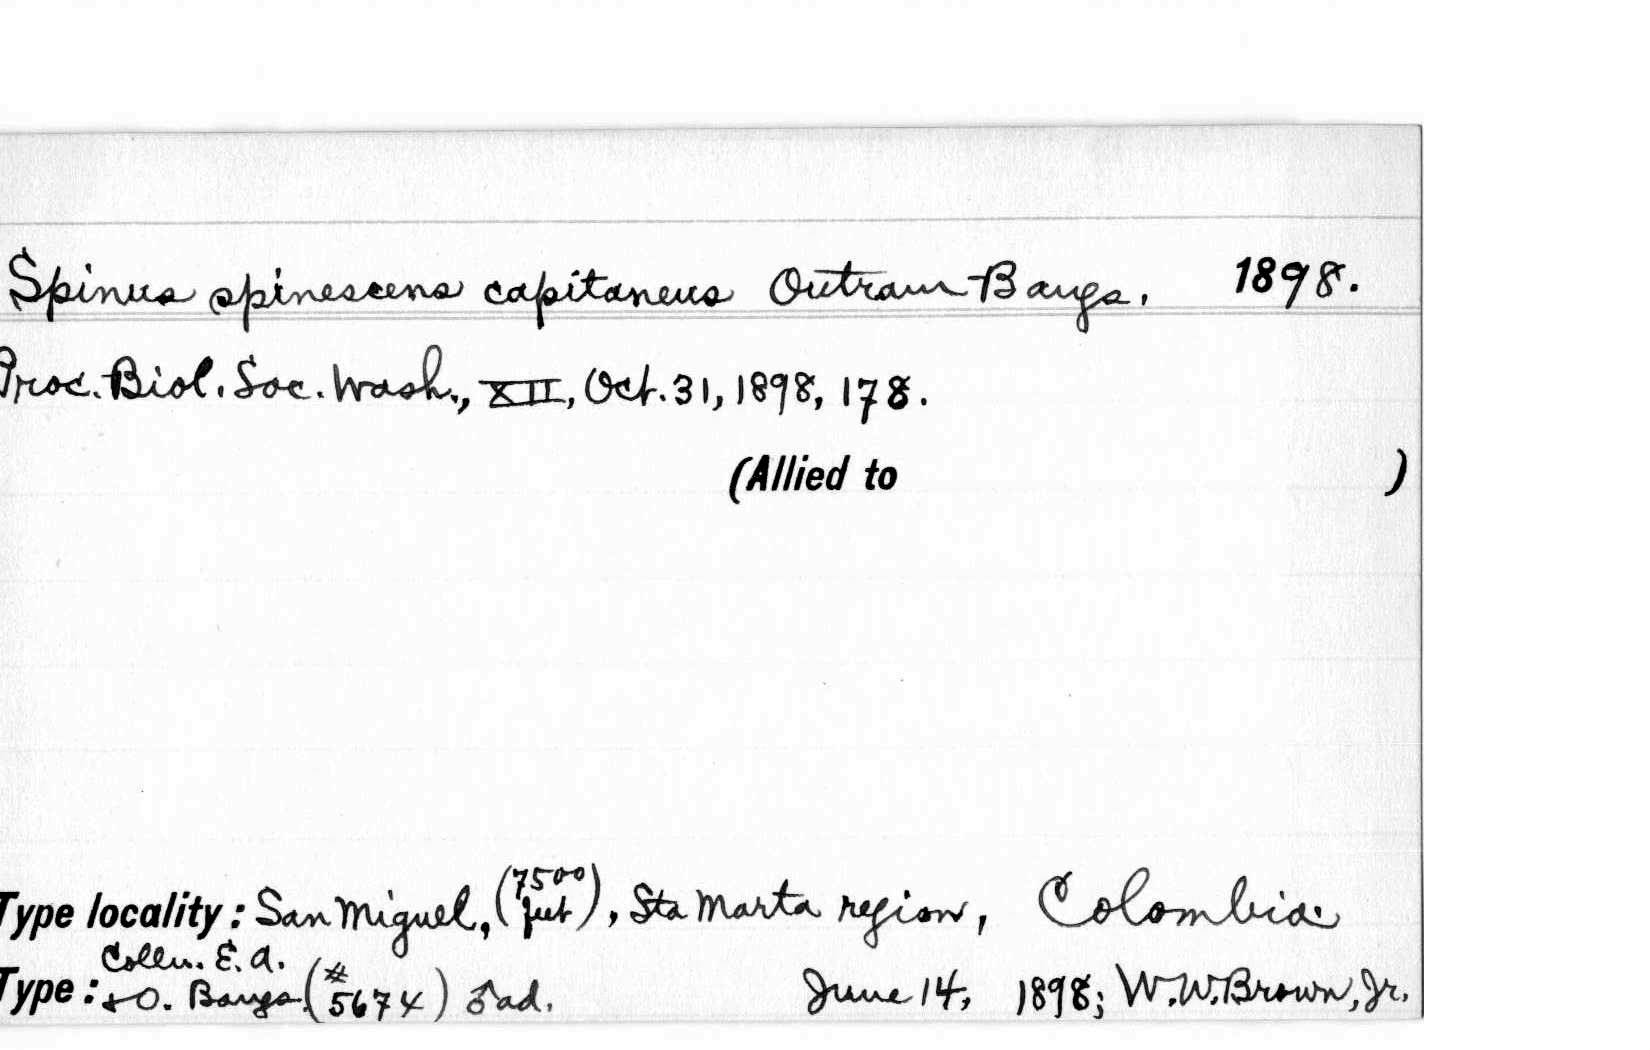 Spinus spinescens capitaneus Outram Bangs. 1898.
Proc. Biol. Soc. Wash., XII, Oct. 31, 1898, 178.
(Allied to )
Type locality: San Miguel, (7500 feet), Sta Marta region, Colombia
Type: Colln. E. A. & O. Bangs (#5674) ♂ ad. June 14, 1898; W. W. Brown, Jr.